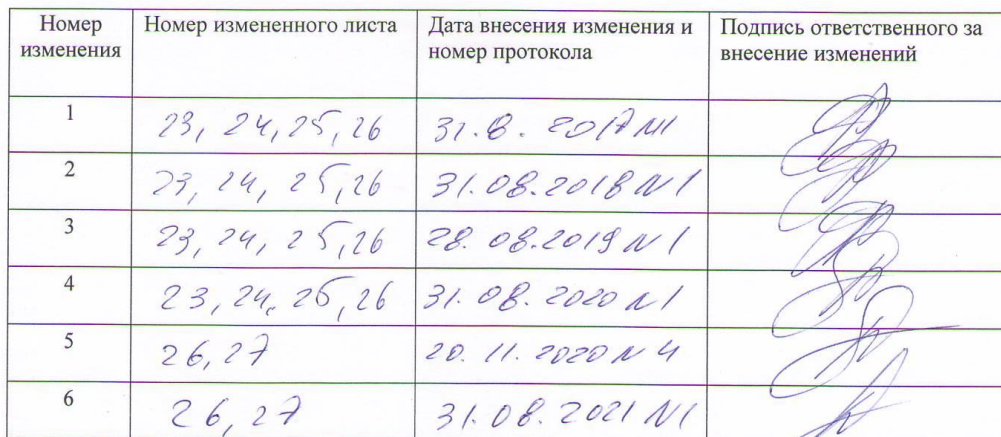 Номер изменения | Номер измененного листа | Дата внесения изменения и номер протокола | Подпись ответственного за внесение изменений
1 | 23, 24, 25, 26 | 31.8.2017 №1
2 | 23, 24, 25, 26 | 31.08.2018 №1
3 | 23, 24, 25, 26 | 28.08.2019 №1
4 | 23, 24, 25, 26 | 31.08.2020 №1
5 | 26, 27 | 20.11.2020 №4
6 | 26, 27 | 31.08.2021 №1